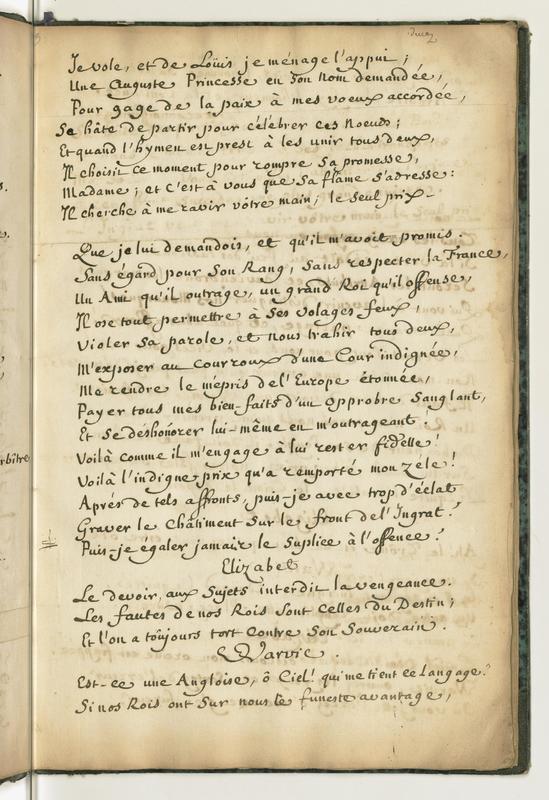 Je vole, et de Loüis je ménage l'appui ;
Une Auguste Princesse en son nom demandée,
Pour gage de la paix à mes voeux accordée,
Se hâte de partir pour célébrer ces Noeuds ;
Et quand l'hymen est prest à les unir tous deux,
Il choisit ce moment pour rompre sa promesse,
Madame ; et c'est à vous que sa flâme s'adresse :
Il cherche à me ravir vôtre main, le seul prix
Que je lui demandois, et qu'il m'avoit promis.
Sans égard pour son Rang, sans respecter la France,
Un Ami qu'il outrage, un grand Roi qu'il offense,
Il ose tout permettre à ses volages feux,
Violer sa parole, et nous trahir tous deux,
M'exposer au courroux d'une Cour indignée,
Me rendre le mépris de l'Europe étonnée,
Payer tous mes bien-faits d'un opprobre sanglant,
Et se deshonorer lui-même en m'outrageant.
Voilà comme il m'engage à lui rester fidelle !
Voilà l'indigne prix qu'a remporté mon zéle !
Aprés de tels affronts, puis-je avec trop d'éclat
Graver le Châtiment sur le front de l'Ingrat ?
Puis-je égaler jamais le suplice à l'offence ?
Elizabet
Le devoir aux Sujets interdit la vengeance.
Les fautes de nos Rois sont celles du Destin ;
Et l'on a toûjours tort contre son Souverain.
Warvic.
Est-ce une Angloise, ô Ciel ! qui me tient ce langage ?
Si nos Rois ont sur nous le funeste avantage,
rbitre